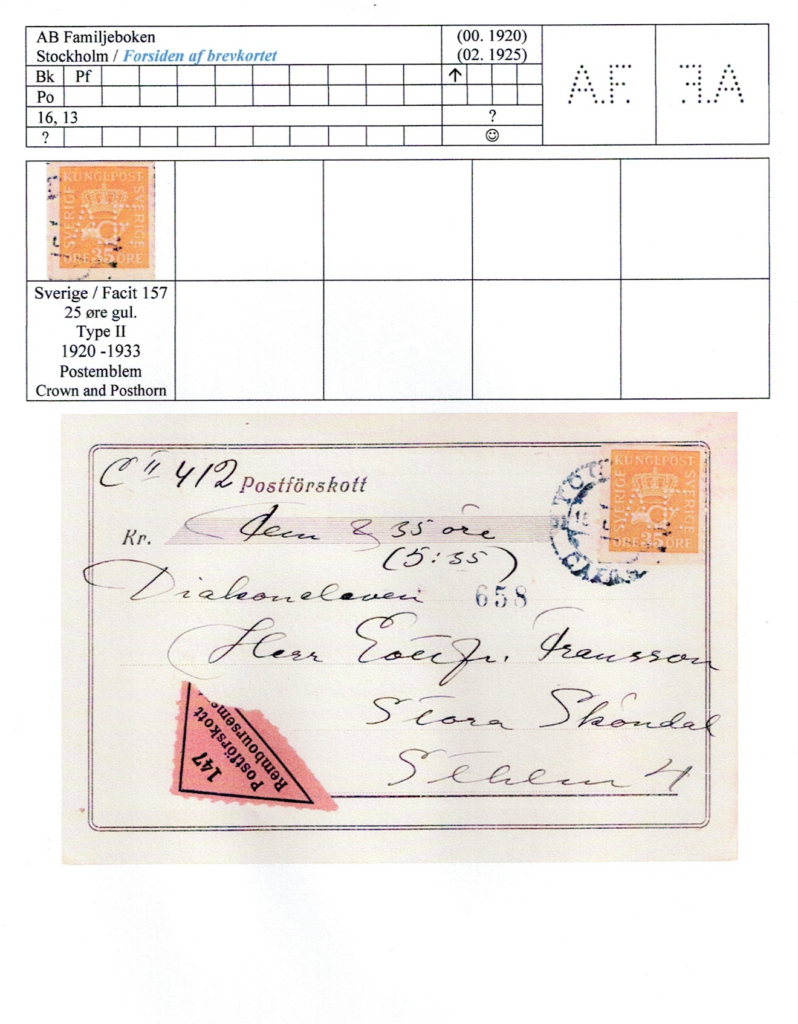 AB Familjeboken
Stockholm / Forsiden af brevkortet
(00. 1920)
(02. 1925)
Bk Pf ↑
Po
16, 13 ?
? ☺
A.F. A.F.
KUNGL.POST
SVERIGE SVERIGE
ÖRE 35 ÖRE
Sverige / Facit 157
25 øre gul.
Type II
1920 -1933
Postemblem
Crown and Posthorn
C II 412 Postförskott
Kr. Fem & 35 öre
(5:35)
Diakoneleven 658
Herr Gottfr. Fransson
Stora Sköndal
Sthlm 4
KUNGL.POST
SVERIGE SVERIGE
ÖRE 35 ÖRE
147
Postförskott